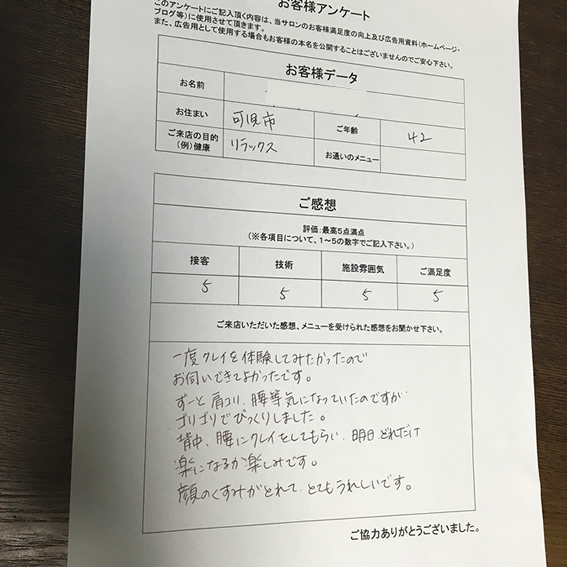 お客様アンケート
このアンケートにご記入頂く内容は、当サロンのお客様満足度の向上及び広告用資料(ホームページ・
ブログ等)に使用させて頂きます。
また、広告用として使用する場合もお客様の本名を公開することはございませんのでご安心下さい。
お客様データ
お名前
お住まい 可児市 ご年齢 42
ご来店の目的 (例)健康 リラックス お通いのメニュー
ご感想
評価:最高5点満点
(※各項目について、1〜5の数字でご記入下さい。)
接客 技術 施設雰囲気 ご満足度
5 5 5 5
ご来店いただいた感想、メニューを受けられた感想をお聞かせ下さい。
一度クレイを体験してみたかったので
お伺いできてよかったです。
ずーと肩コリ、腰等気になっていたのですが
ゴリゴリでびっくりしました。
背中、腰にクレイをしてもらい、明日どれだけ
楽になるか楽しみです。
顔のくすみがとれて、とてもうれしいです。
ご協力ありがとうございました。